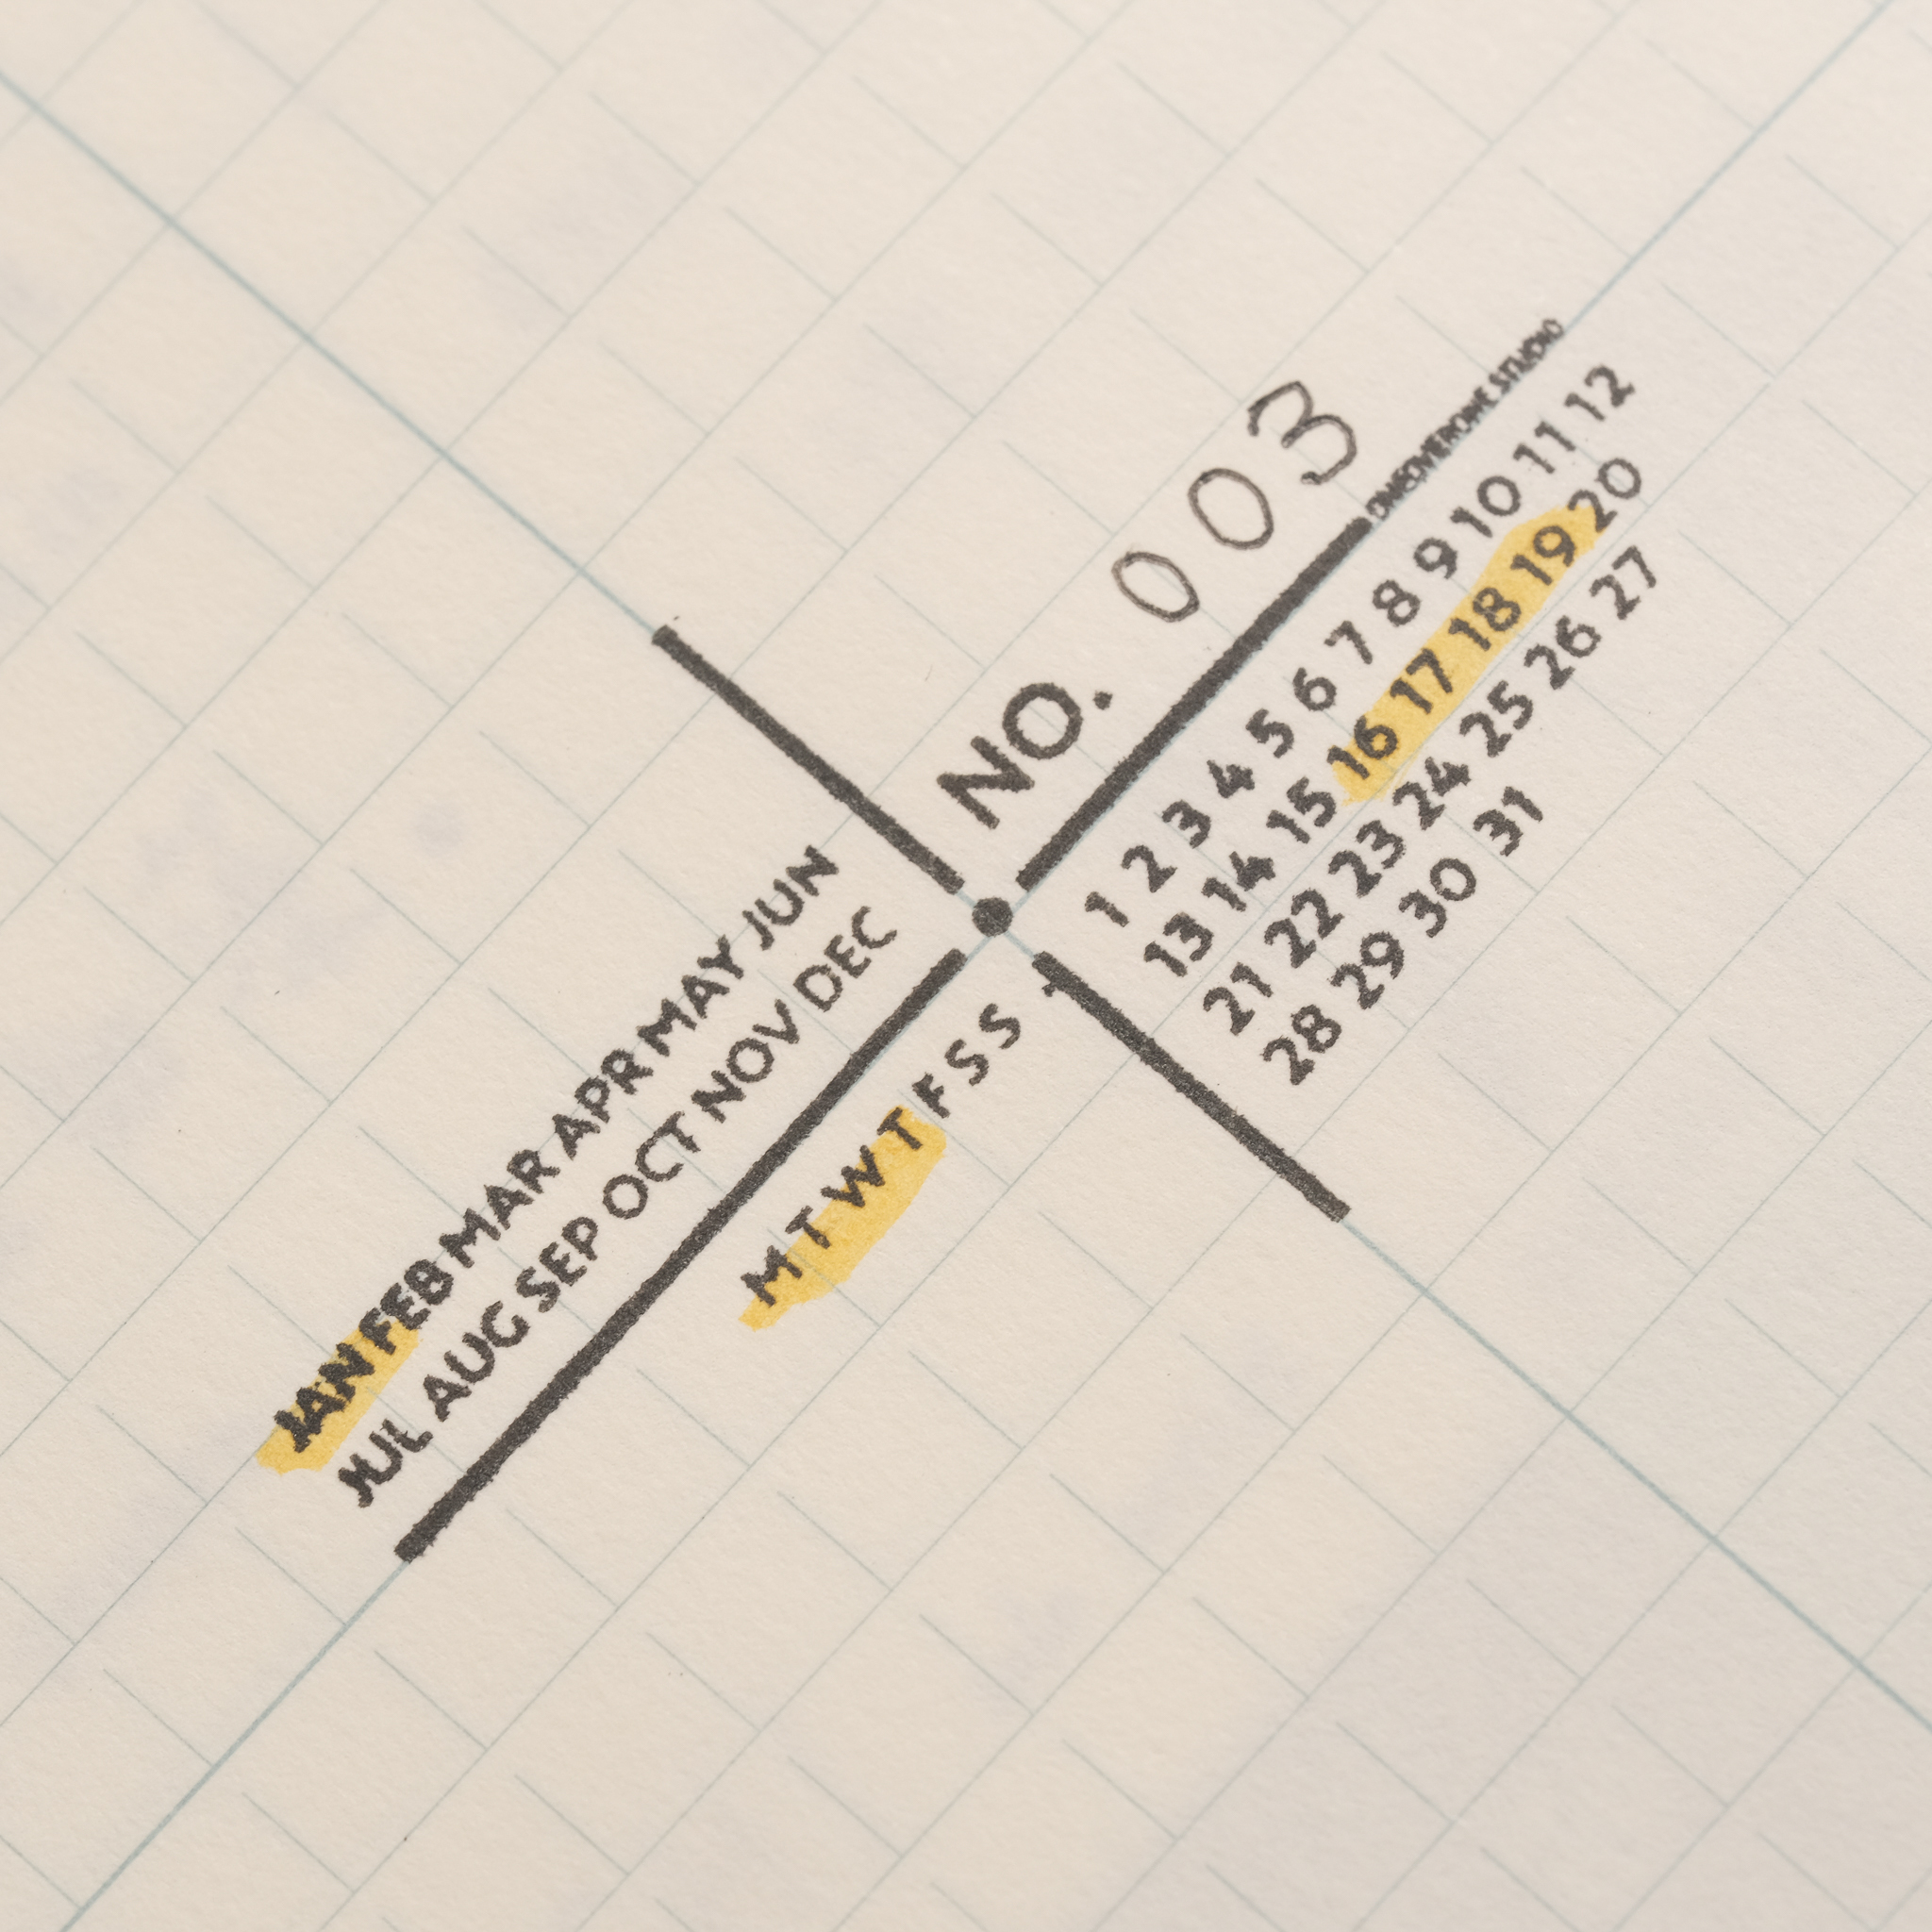 NO. 003
ONEOVERONE STUDIO
1 2 3 4 5 6 7 8 9 10 11 12
13 14 15 16 17 18 19 20
21 22 23 24 25 26 27
28 29 30 31
JAN FEB MAR APR MAY JUN
JUL AUG SEP OCT NOV DEC
M T W T F S S